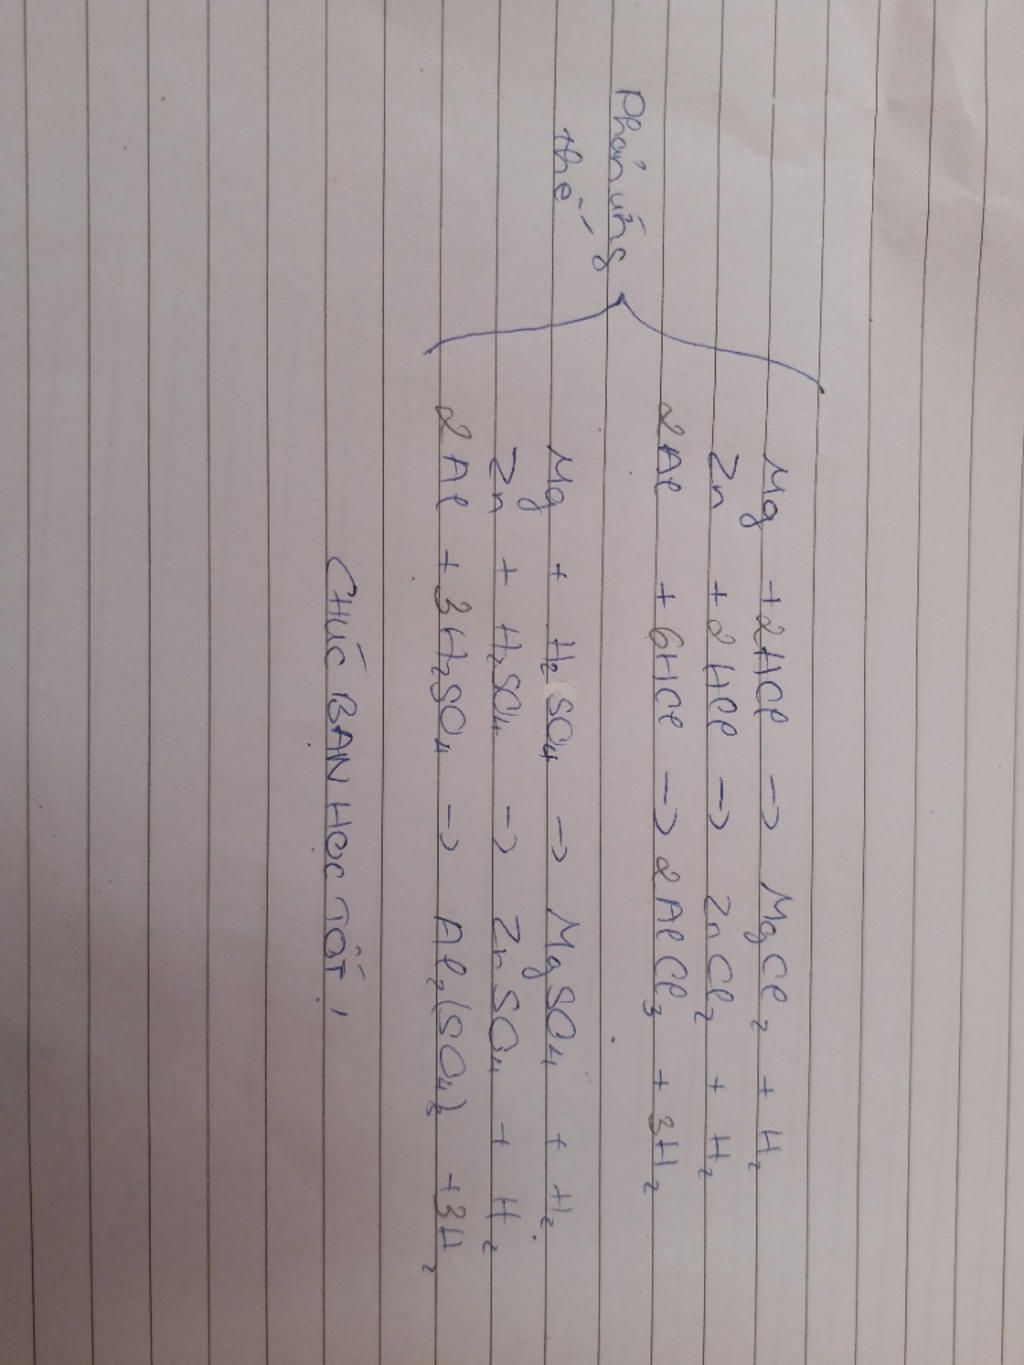 Phản ứng
thế
Mg + 2HCl → MgCl₂ + H₂
Zn + 2HCl → ZnCl₂ + H₂
2Al + 6HCl → 2AlCl₃ + 3H₂
Mg + H₂SO₄ → MgSO₄ + H₂
Zn + H₂SO₄ → ZnSO₄ + H₂
2Al + 3H₂SO₄ → Al₂(SO₄)₃ + 3H₂
CHÚC BẠN HỌC TỐT!